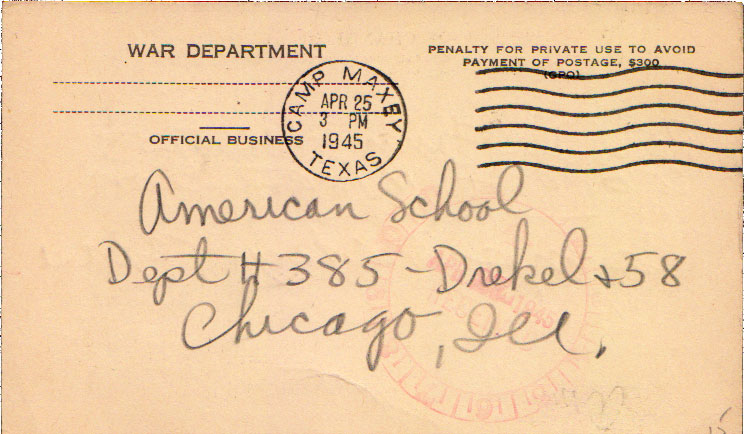 WAR DEPARTMENT
OFFICIAL BUSINESS
PENALTY FOR PRIVATE USE TO AVOID
PAYMENT OF POSTAGE, $300
(GPO)
CAMP MAXEY
APR 25
3 PM
1945
TEXAS
American School
Dept H 385 - Drexel + 58
Chicago, Ill.
1945
15